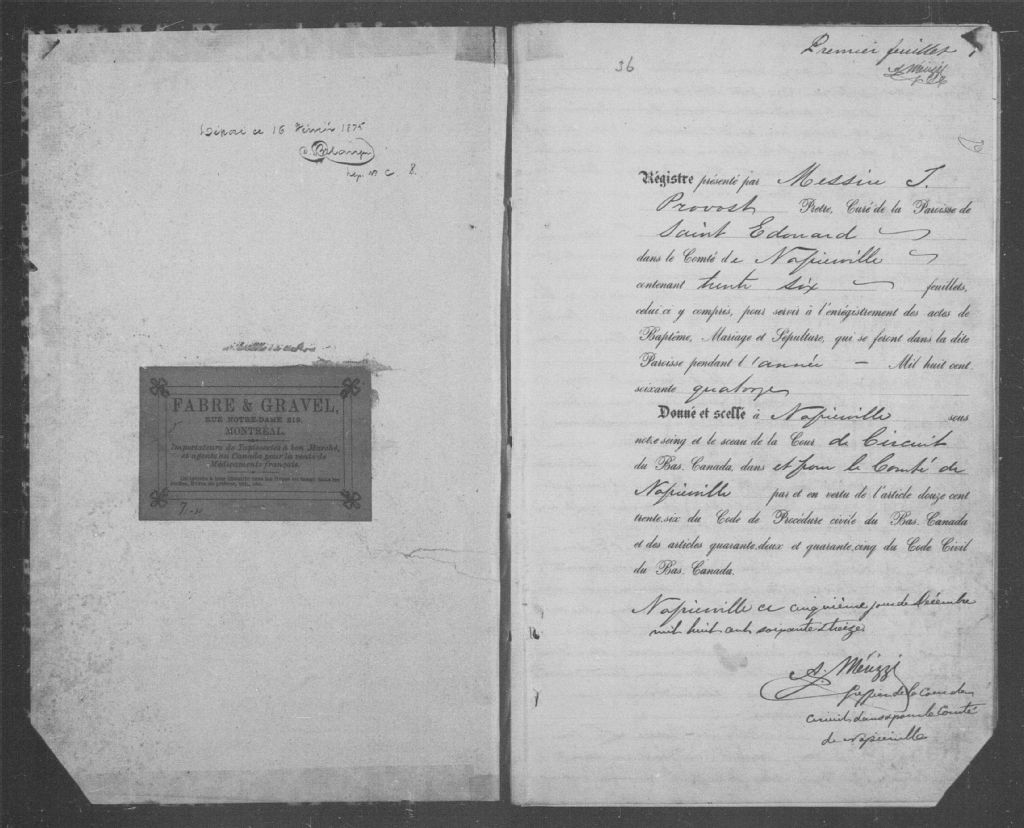 Déposé ce 16 Février 1875
FABRE & GRAVEL,
RUE NOTRE-DAME 219,
MONTRÉAL.
Importateurs de Tapisseries à bon Marché,
et agents au Canada pour la vente de
Médicaments français.
Premier feuillet
A. Mérizzi
36
Régistre présenté par Messire J.
Provost Prêtre, Curé de la Paroisse de
Saint Edouard
dans le Comté de Napierville
contenant trente six feuillets,
celui ci y compris, pour servir à l'enrégistrement des actes de
Baptême, Mariage et Sépulture, qui se feront dans la dite
Paroisse pendant l'année – Mil huit cent
soixante quatorze
Donné et scellé à Napierville sous
notre seing et le sceau de la Cour de Circuit
du Bas. Canada, dans et pour le Comté de
Napierville par et en vertu de l'article douze cent
trente.six du Code de Procédure civile du Bas. Canada
et des articles quarante.deux et quarante.cinq du Code Civil
du Bas. Canada.
Napierville ce cinquième jour de Décembre
mil huit cent soixante & treize
A. Mérizzi
Greffier de la Cour de
circuit dans & pour le Comté
de Napierville